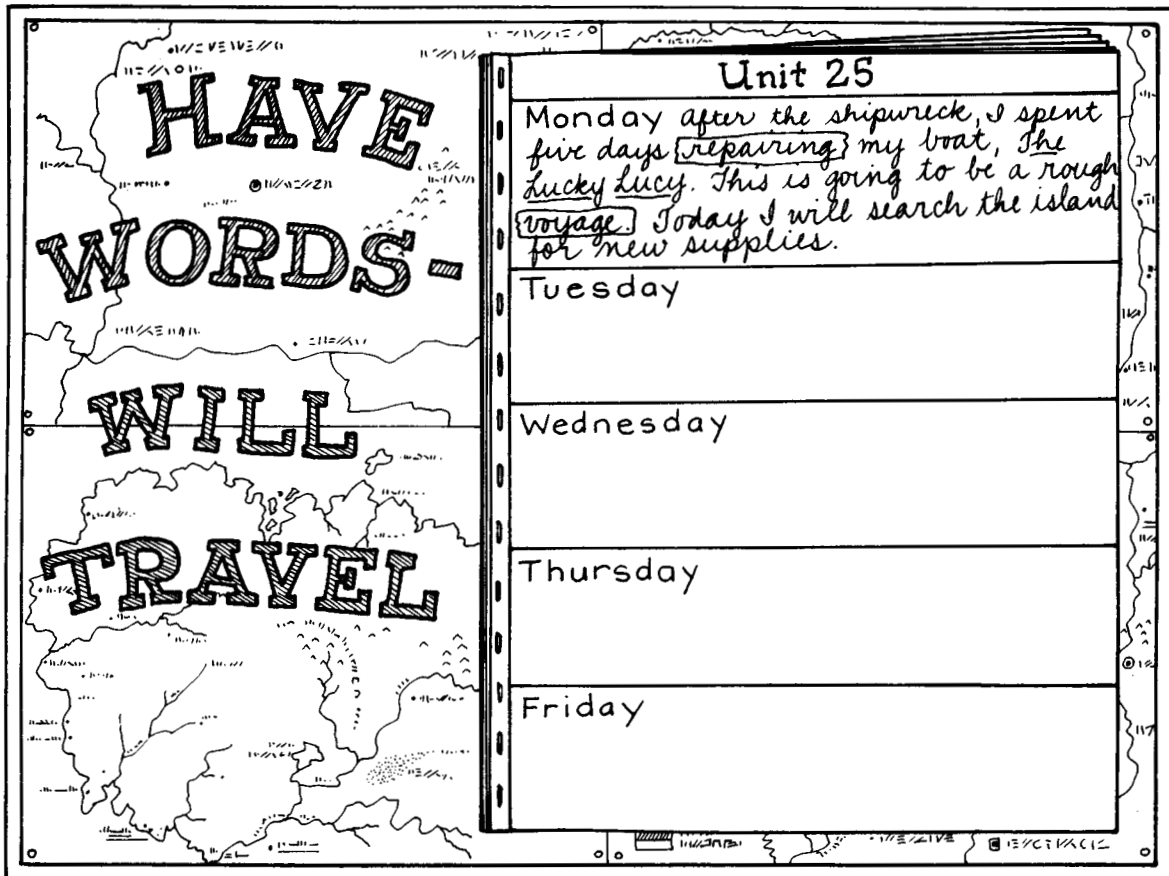 HAVE
WORDS-
WILL
TRAVEL
Unit 25
Monday after the shipwreck, I spent
five days repairing my boat, The
Lucky Lucy. This is going to be a rough
voyage. Today I will search the island
for new supplies.
Tuesday
Wednesday
Thursday
Friday